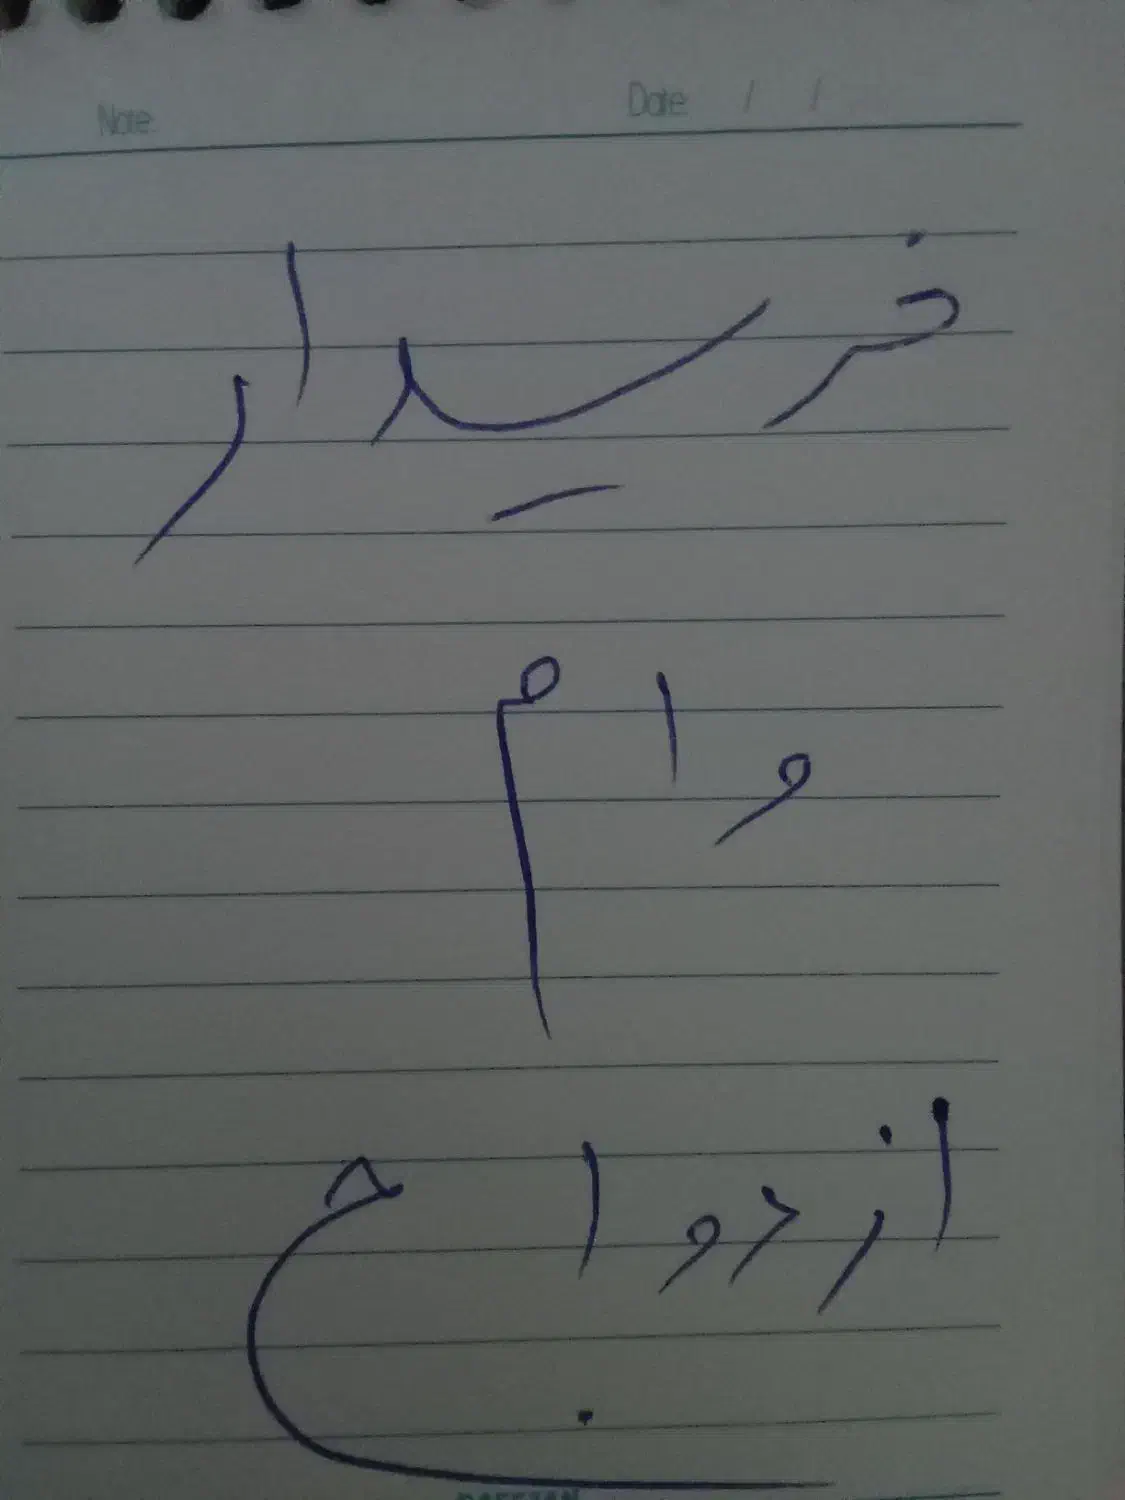 Note: Date: / /
خریدار
وام
ازدواج